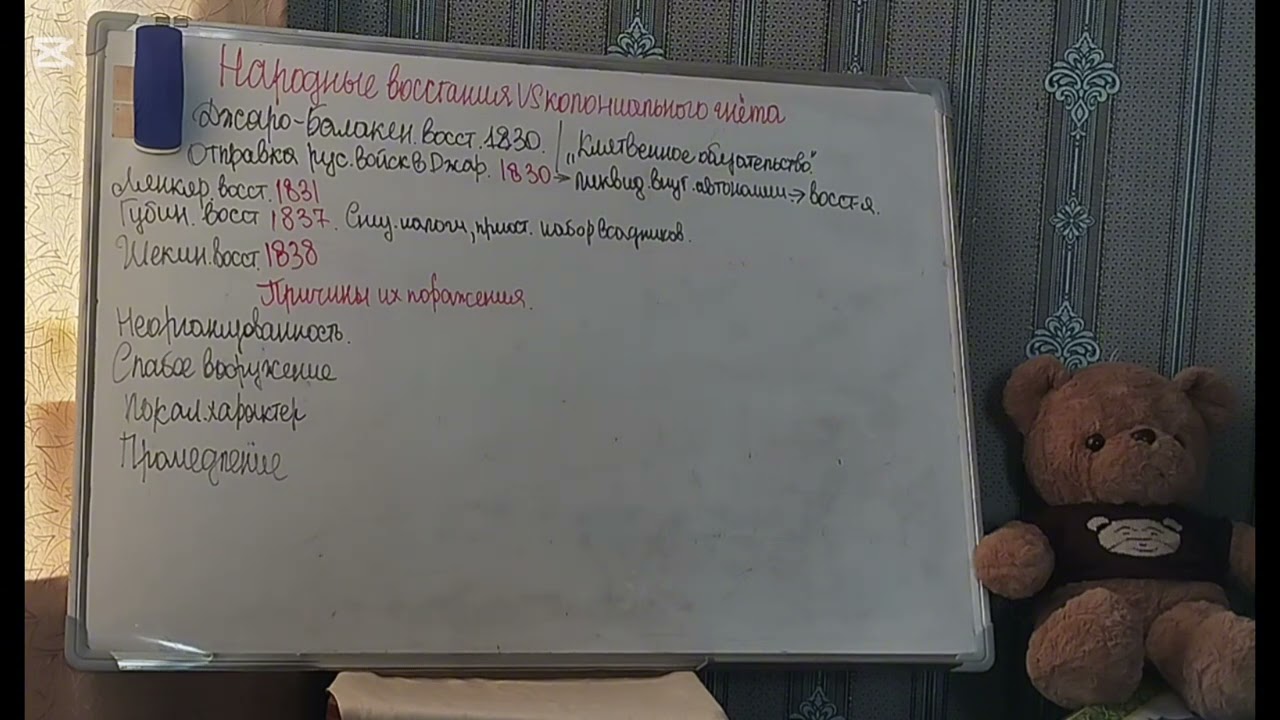 Народные восстания VS колониального гнёта
Джаро-Балакен. восст. 1830.
Отправка рус. войск в Джар. 1830 →
"Клятвенное обязательство".
ликвид. внут. автономии → восст-я.
Ленкяр. восст. 1831
Губин. восст 1837. Сниж. налоги, приост. набор всадников.
Шекин. восст. 1838
Причины их поражения.
Неорганизованность.
Слабое вооружение
Локал. характер
Промедление